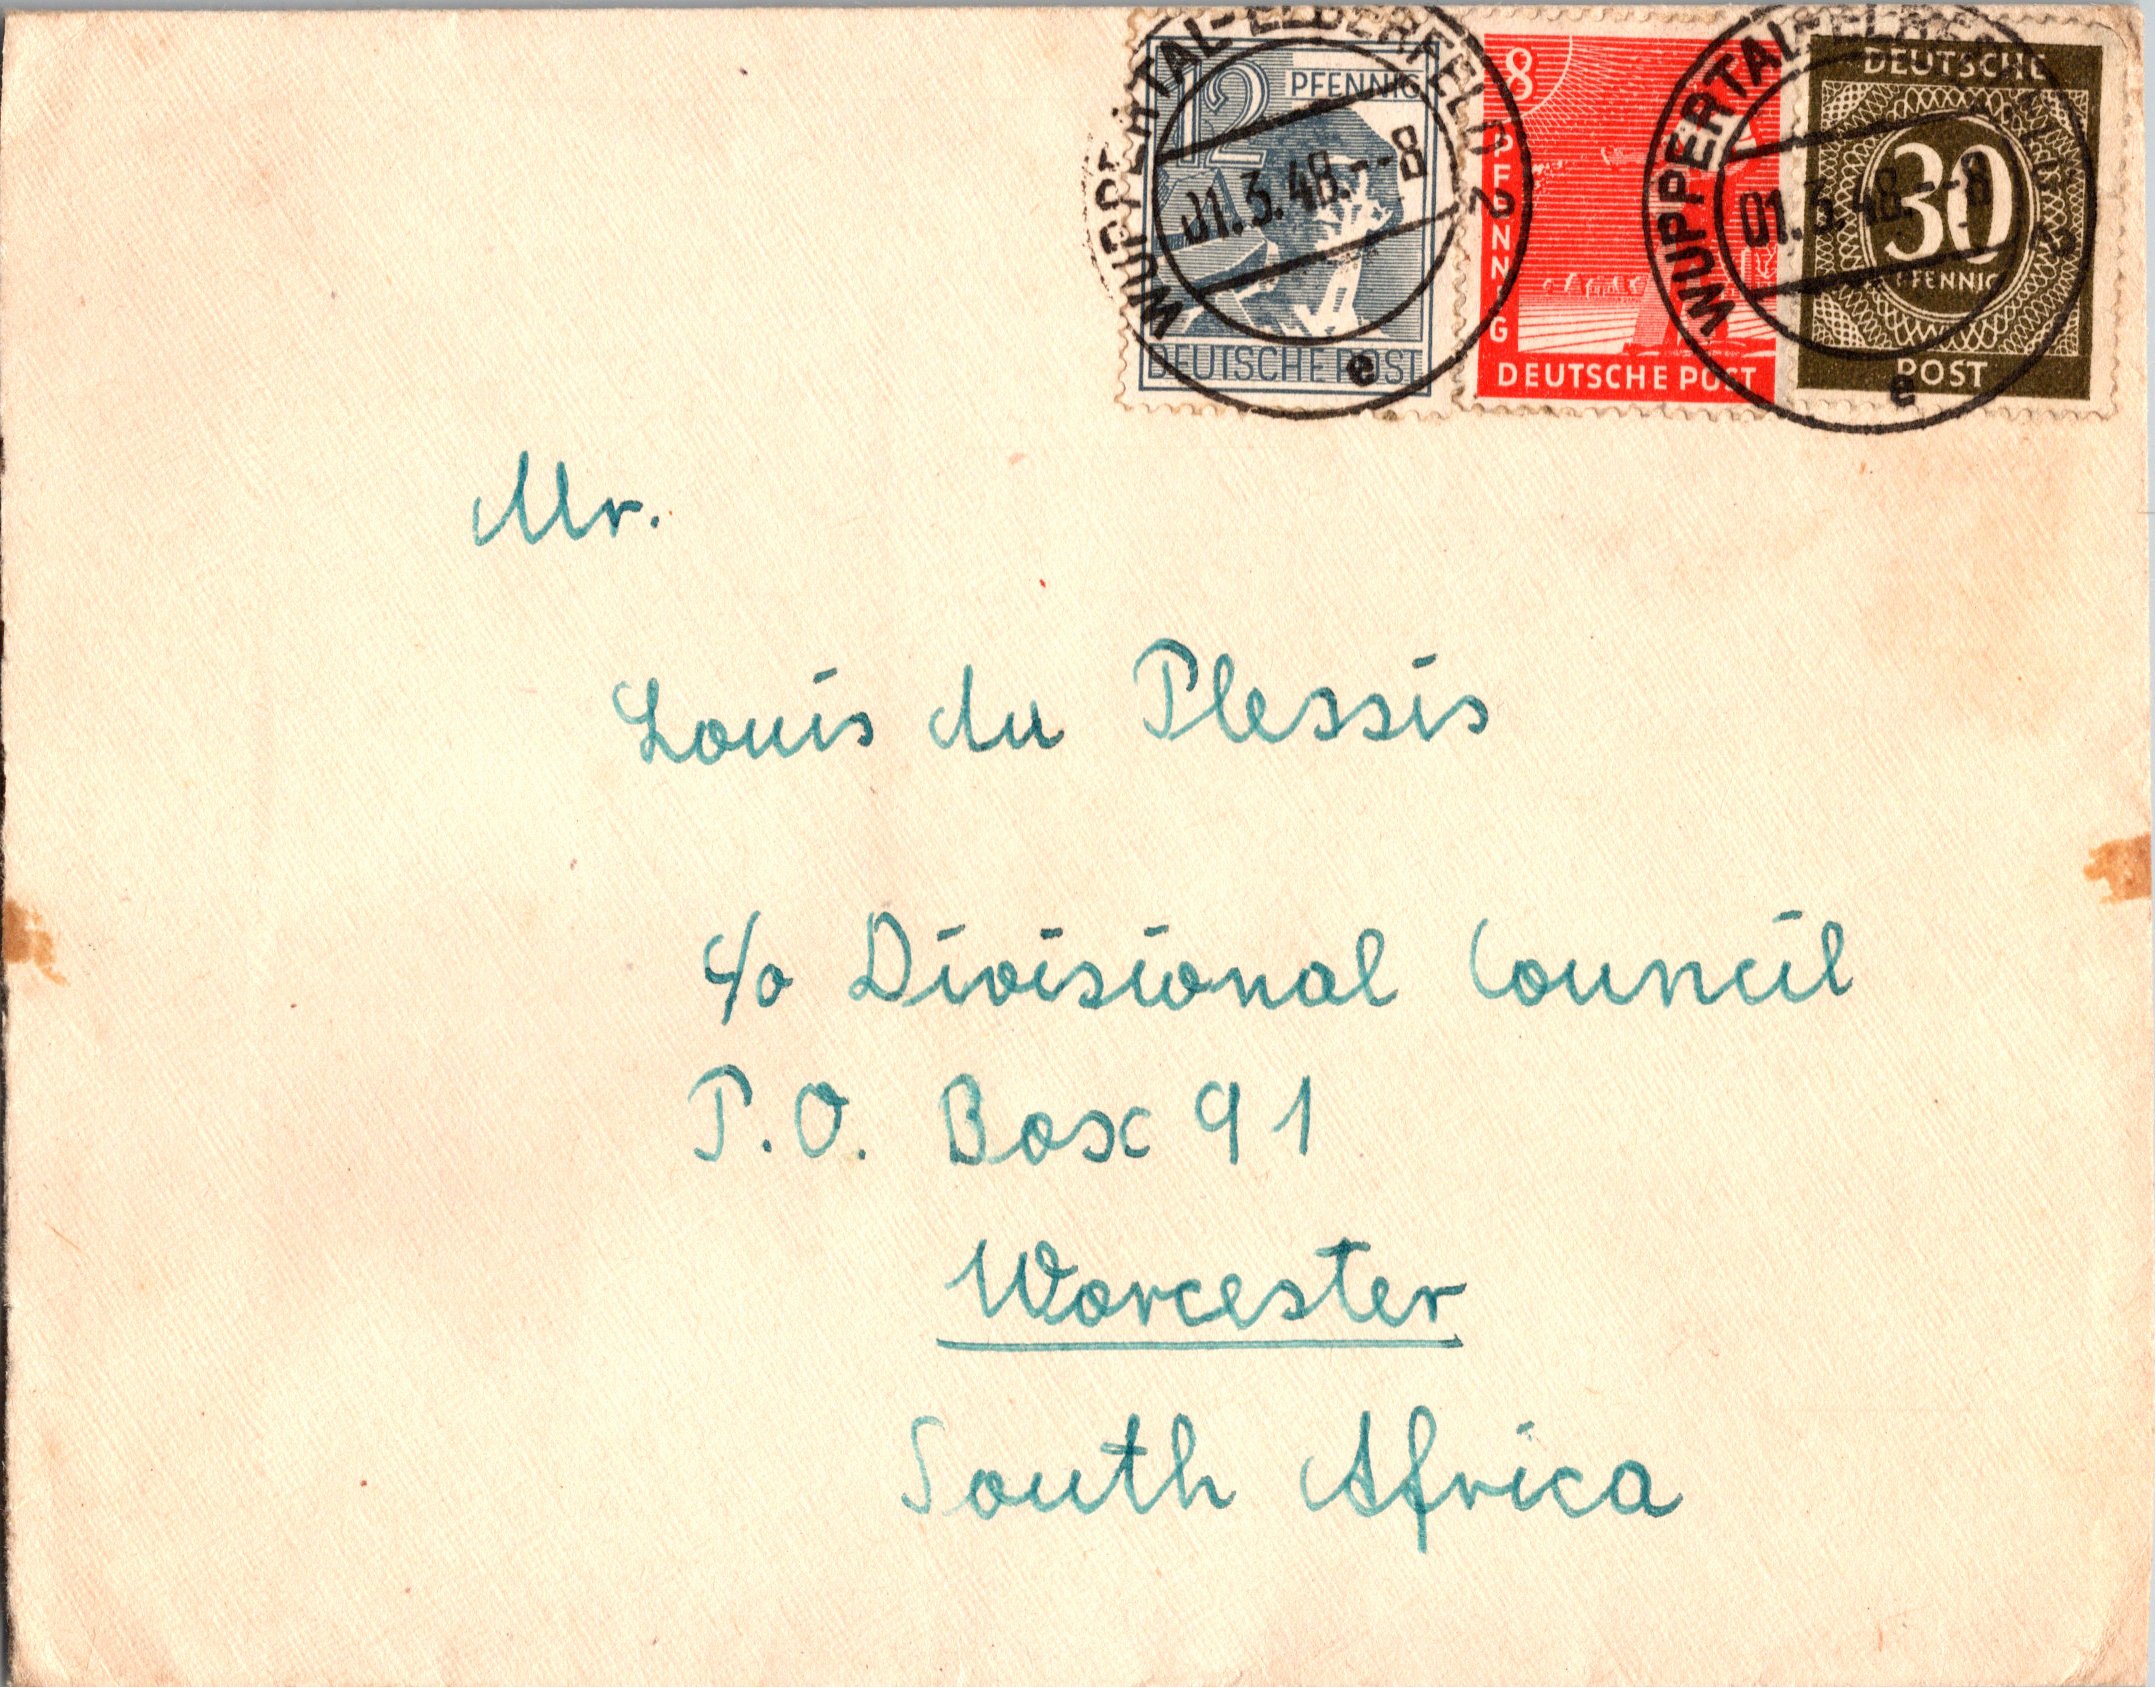 WUPPERTAL-ELBERFELD 2
01.3.48.--8
e
12 PFENNIG
DEUTSCHE POST
8
PFENNIG
DEUTSCHE POST
WUPPERTAL-ELBERFELD 2
01.3.48.--8
e
DEUTSCHE
30
PFENNIG
POST
Mr.
Louis du Plessis
c/o Divisional Council
P.O. Box 91
Worcester
South Africa